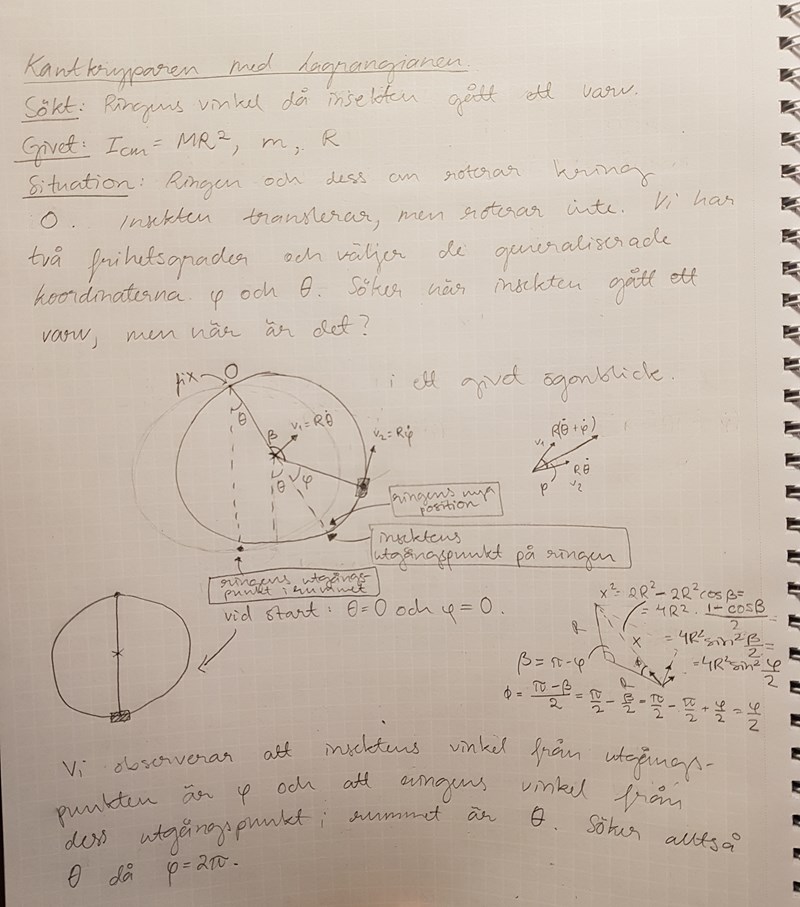 Kantkryparen med Lagrangianen.
Sökt: Ringens vinkel då insekten gått ett varv.
Givet: Icm = MR², m, R
Situation: Ringen och dess cm roterar kring
O. Insekten translerar, men roterar inte. Vi har
två frihetsgrader och väljer de generaliserade
koordinaterna φ och θ. Söker när insekten gått ett
varv, men när är det?
fix O
i ett givet ögonblick.
θ
β
v₁=Rθ̇
v₂=Rφ̇
θ φ
v₁ R(θ̇+φ̇)
Rθ̇
v₂
ringens nya
position
insektens
utgångspunkt på ringen
ringens utgångs-
punkt i rummet
vid start: θ=0 och φ=0.
x²=2R²-2R²cosβ=
=4R²·(1-cosβ)/2
=4R²sin²β/2=
=4R²sin²φ/2
R
x
R
β=π-φ
ϕ=(π-β)/2=π/2-β/2=π/2-π/2+φ/2=φ/2
Vi observerar att insektens vinkel från utgångs-
punkten är φ och att ringens vinkel från
dess utgångspunkt i rummet är θ. Söker alltså
θ då φ=2π.